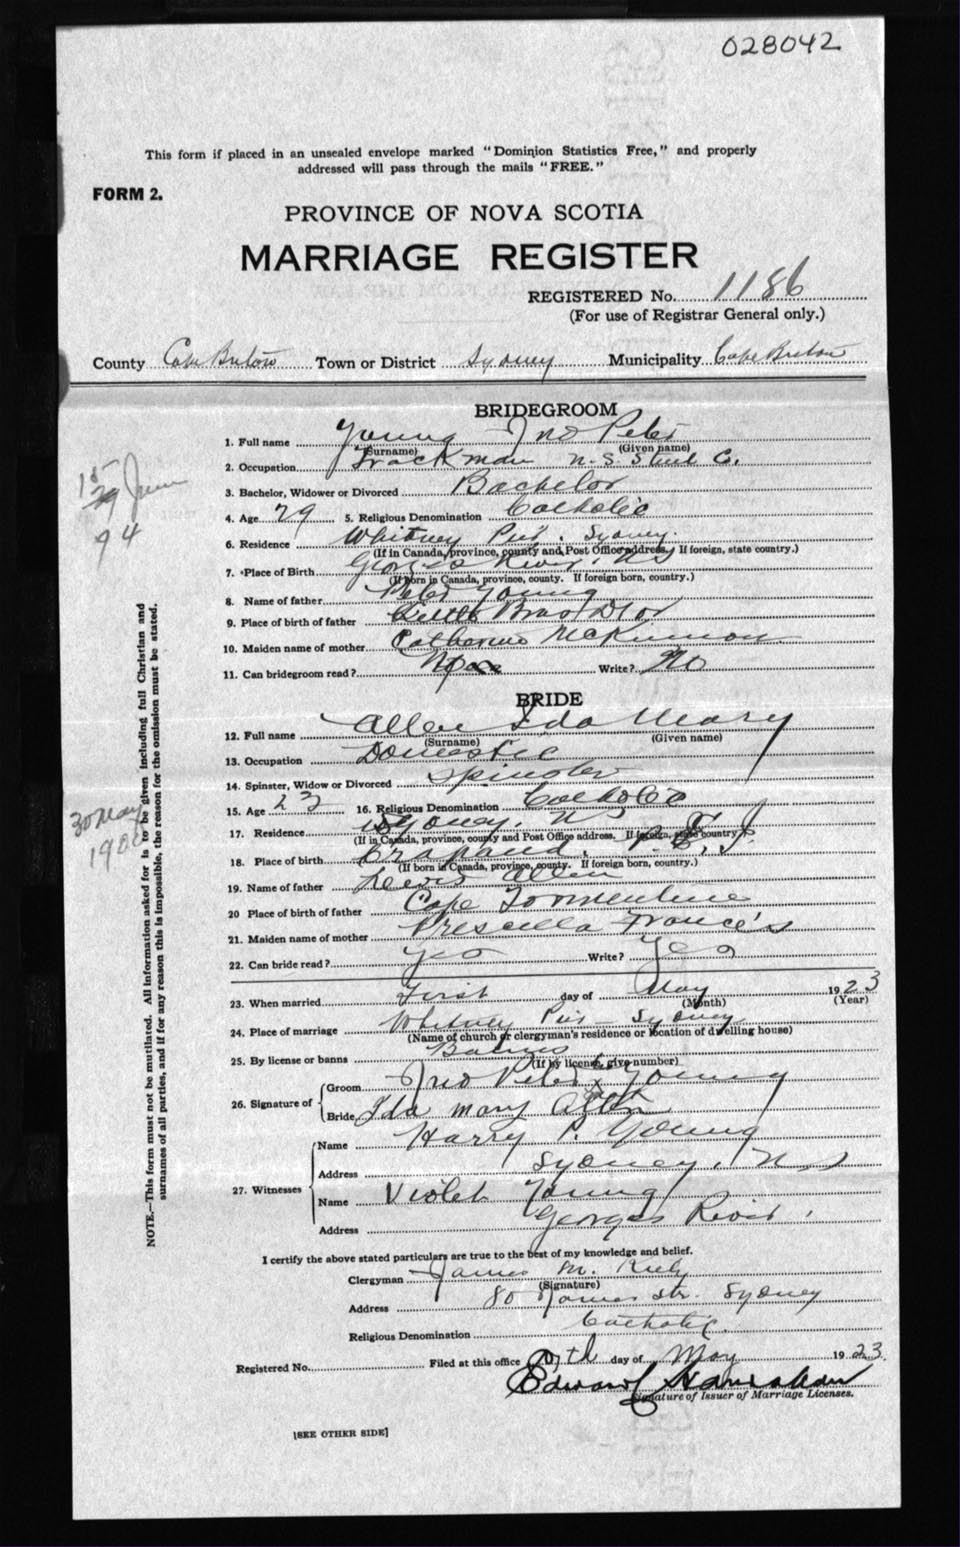 028042
This form if placed in an unsealed envelope marked "Dominion Statistics Free," and properly
addressed will pass through the mails "FREE."
FORM 2.
PROVINCE OF NOVA SCOTIA
MARRIAGE REGISTER
REGISTERED No. 1186
(For use of Registrar General only.)
County Cape Breton Town or District Sydney Municipality Cape Breton
BRIDEGROOM
1. Full name Young Jno Peter
(Surname) (Given name)
2. Occupation Trackman N.S. Steel C.
3. Bachelor, Widower or Divorced Bachelor
4. Age 29 5. Religious Denomination Catholic
6. Residence Whitney Pier. Sydney.
(If in Canada, province, county and Post Office address. If foreign, state country.)
7. Place of Birth Georges River, NS
(If born in Canada, province, county. If foreign born, country.)
8. Name of father Peter Young
9. Place of birth of father Little Bras Dor
10. Maiden name of mother Catherine McKinnon
11. Can bridegroom read? Write? No
BRIDE
12. Full name Allen Ida Mary
(Surname) (Given name)
13. Occupation Domestic
14. Spinster, Widow or Divorced Spinster
15. Age 23 16. Religious Denomination Catholic
17. Residence Sydney, NS
(If in Canada, province, county and Post Office address. If foreign, state country.)
18. Place of birth P.E.I.
(If born in Canada, province, county. If foreign born, country.)
19. Name of father Lewis Allen
20 Place of birth of father Cape Tormentine
21. Maiden name of mother Prescilla Francis
22. Can bride read? Yes Write? Yes
23. When married First day of May 1923
(Month) (Year)
24. Place of marriage Whitney Pier – Sydney
(Name of church or clergyman's residence or location of dwelling house)
25. By license or banns Banns
(If by license, give number)
26. Signature of Groom Jno Peter Young
Bride Ida Mary Allen
27. Witnesses Name Harry P. Young
Address Sydney, N S
Name Violet Young
Address Georges River.
I certify the above stated particulars are true to the best of my knowledge and belief.
Clergyman James M. Kiely
(Signature)
Address 80 James Str. Sydney
Religious Denomination Catholic.
Registered No. Filed at this office day of May 1923.
Edward Hanrahan
Signature of Issuer of Marriage Licenses.
[SEE OTHER SIDE]
NOTE.—This form must not be mutilated. All information asked for is to be given including full Christian and
surnames of all parties, and if for any reason this is impossible, the reason for the omission must be stated.
15
29 June
94
30 May